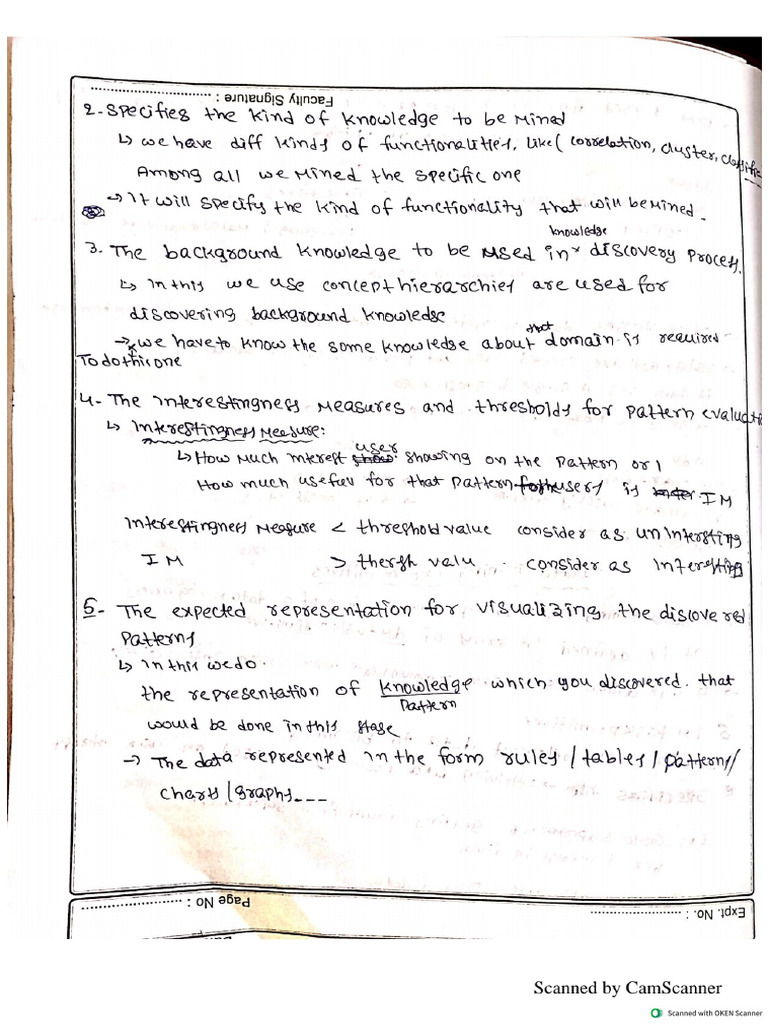 Faculty Signature : ..............................
2. Specifies the kind of knowledge to be mined
↳ we have diff kinds of functionalities, like ( correlation, cluster, classific
Among all we mined the specific one
→ It will specify the kind of functionality that will be mined.
knowledge
3. The background knowledge to be used in^ discovery process.
↳ in this we use concept hierarchies are used for
discovering background knowledge
that
→ we have to know the some knowledge about^ domain is required
To do this one
4- The interestingness measures and thresholds for pattern evaluati
↳ Interestingness Measure:
user
↳ How much interest showing on the pattern or |
How much useful for that pattern users is IM
Interestingness Measure < threshold value consider as unintersting
IM > thersh valu consider as interesting
5- The expected representation for visualizing the discovered
patterns
↳ in this we do.
the representation of knowledge which you discovered. that
pattern
would be done in this stage
→ The data represented in the form rules / tables / patterns//
chars / graphs---
Page No : .........................
Expt. No. : .........................
Scanned by CamScanner
Scanned with OKEN Scanner